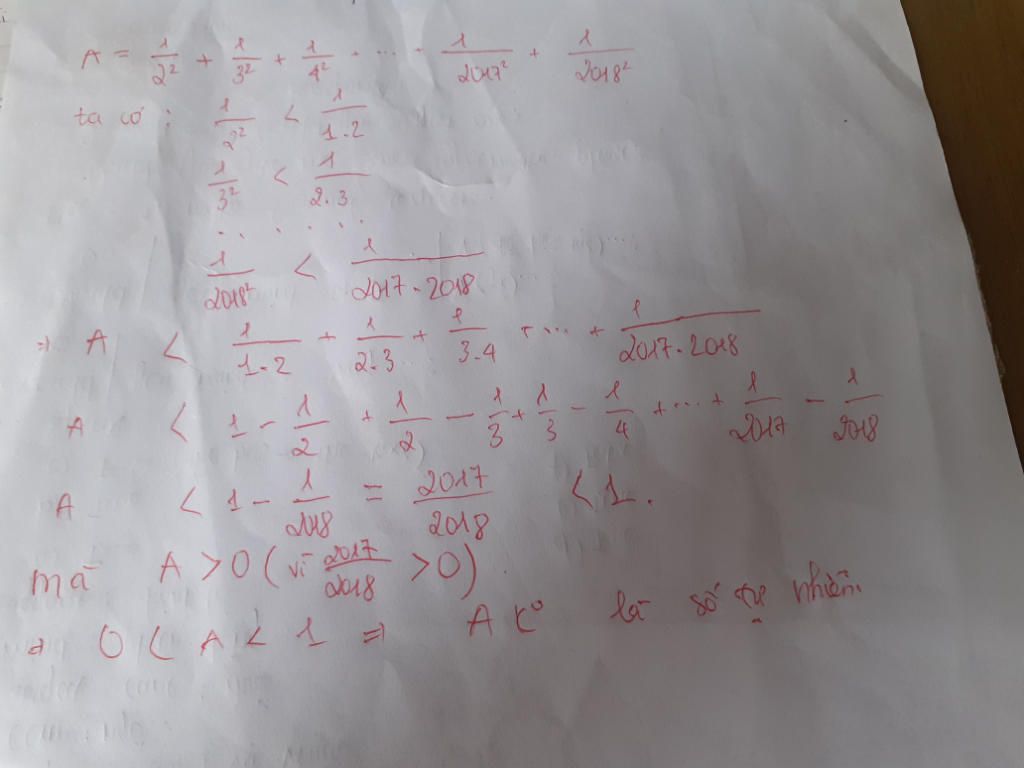 A = 1/2² + 1/3² + 1/4² + ... + 1/2017² + 1/2018²
ta có : 1/2² < 1/1.2
1/3² < 1/2.3
. . . . . .
1/2018² < 1/2017.2018
=> A < 1/1.2 + 1/2.3 + 1/3.4 + ... + 1/2017.2018
A < 1 - 1/2 + 1/2 - 1/3 + 1/3 - 1/4 + ... + 1/2017 - 1/2018
A < 1 - 1/2018 = 2017/2018 < 1.
mà A > 0 ( vì 2017/2018 > 0 )
=> 0 < A < 1 => A k° là số tự nhiên.